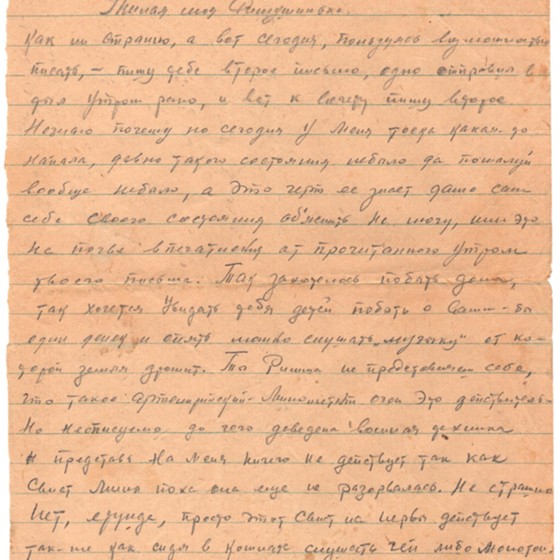 Милая моя Римушинька.
Как ни странно, а вот сегодня, пользуясь возможностью
писать, – пишу тебе второе письмо, одно отправил в
утром рано, и вот к вечеру пишу второе
Незнаю почему но сегодня у меня тоска какая-то
напала, давно такого состояния небыло да пожалуй
вообще небыло, а это черт ее знает даже сам
себе своего состояния об'яснить не могу, или это
на почве впечатления от прочитанного утром
твоего письма. Так захотелось побыть дома,
так хочется увидать тебя детей побыть с Вами хотя бы
один денек и опять можно слушать „музыку" от ко-
торой земля дрожит. Ты Римма не представляешь себе,
что такое артиллерийский – Минометный огонь это действитель-
но неописуемо до чего доведена военная техника
и представь на меня ничего не действует так как
Свист мины пока она еще не разорвалась. Не страшно
нет, ерунда, просто этот свист на нервы действует
так-же как сидя в комнате слушать чей либо монотон-